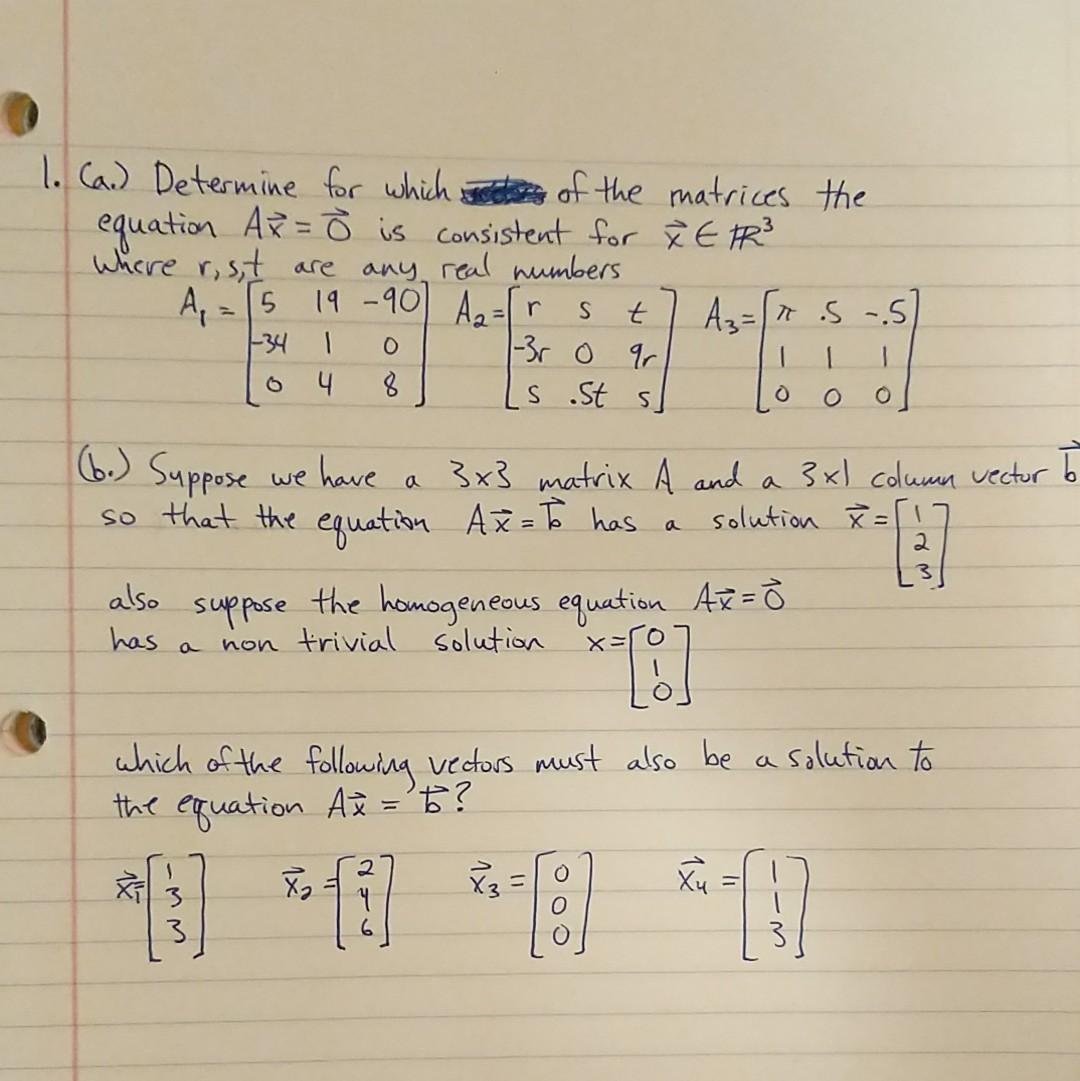 1. (a.) Determine for which of the matrices the
equation Ax⃗ = 0⃗ is consistent for x⃗ ∈ ℝ³
where r,s,t are any real numbers
A₁ = [5 19 -90] A₂ = [r s t] A₃ = [π .5 -.5]
[-34 1 0] [-3r 0 9r] [1 1 1]
[0 4 8] [s .5t s] [0 0 0]
(b.) Suppose we have a 3x3 matrix A and a 3x1 column vector b⃗
so that the equation Ax⃗ = b⃗ has a solution x⃗ = [1
2
3]
also suppose the homogeneous equation Ax⃗ = 0⃗
has a non trivial solution x = [0
1
0]
which of the following vectors must also be a solution to
the equation Ax⃗ = b⃗?
x⃗₁ = [1 x⃗₂ = [2 x⃗₃ = [0 x⃗₄ = [1
3 4 0 1
3] 6] 0] 3]